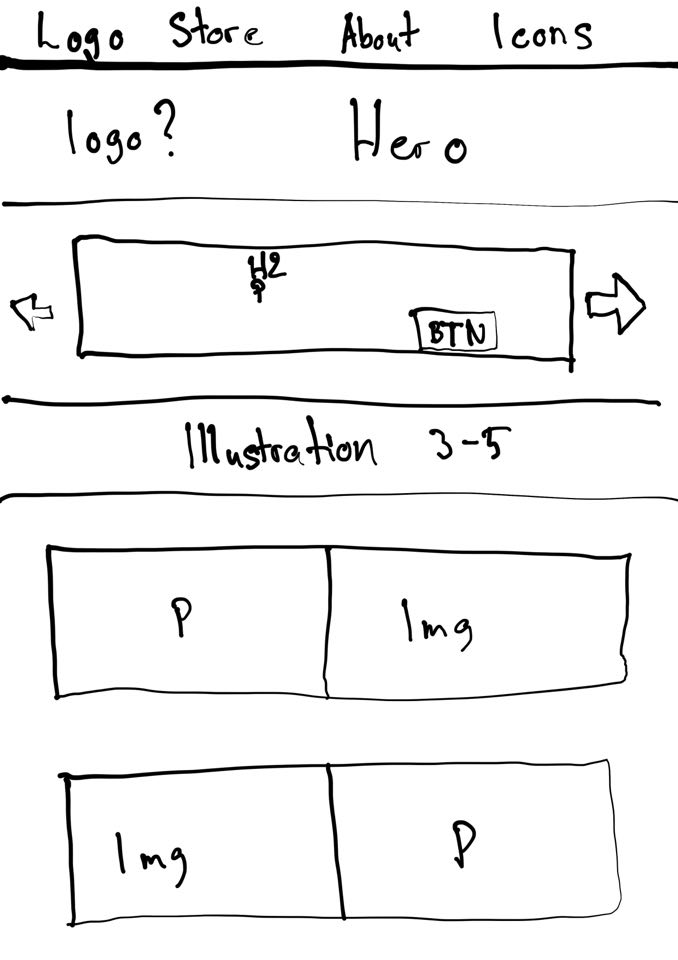 Logo Store About Icons
logo? Hero
H2
P
BTN
Illustration 3-5
P Img
Img P